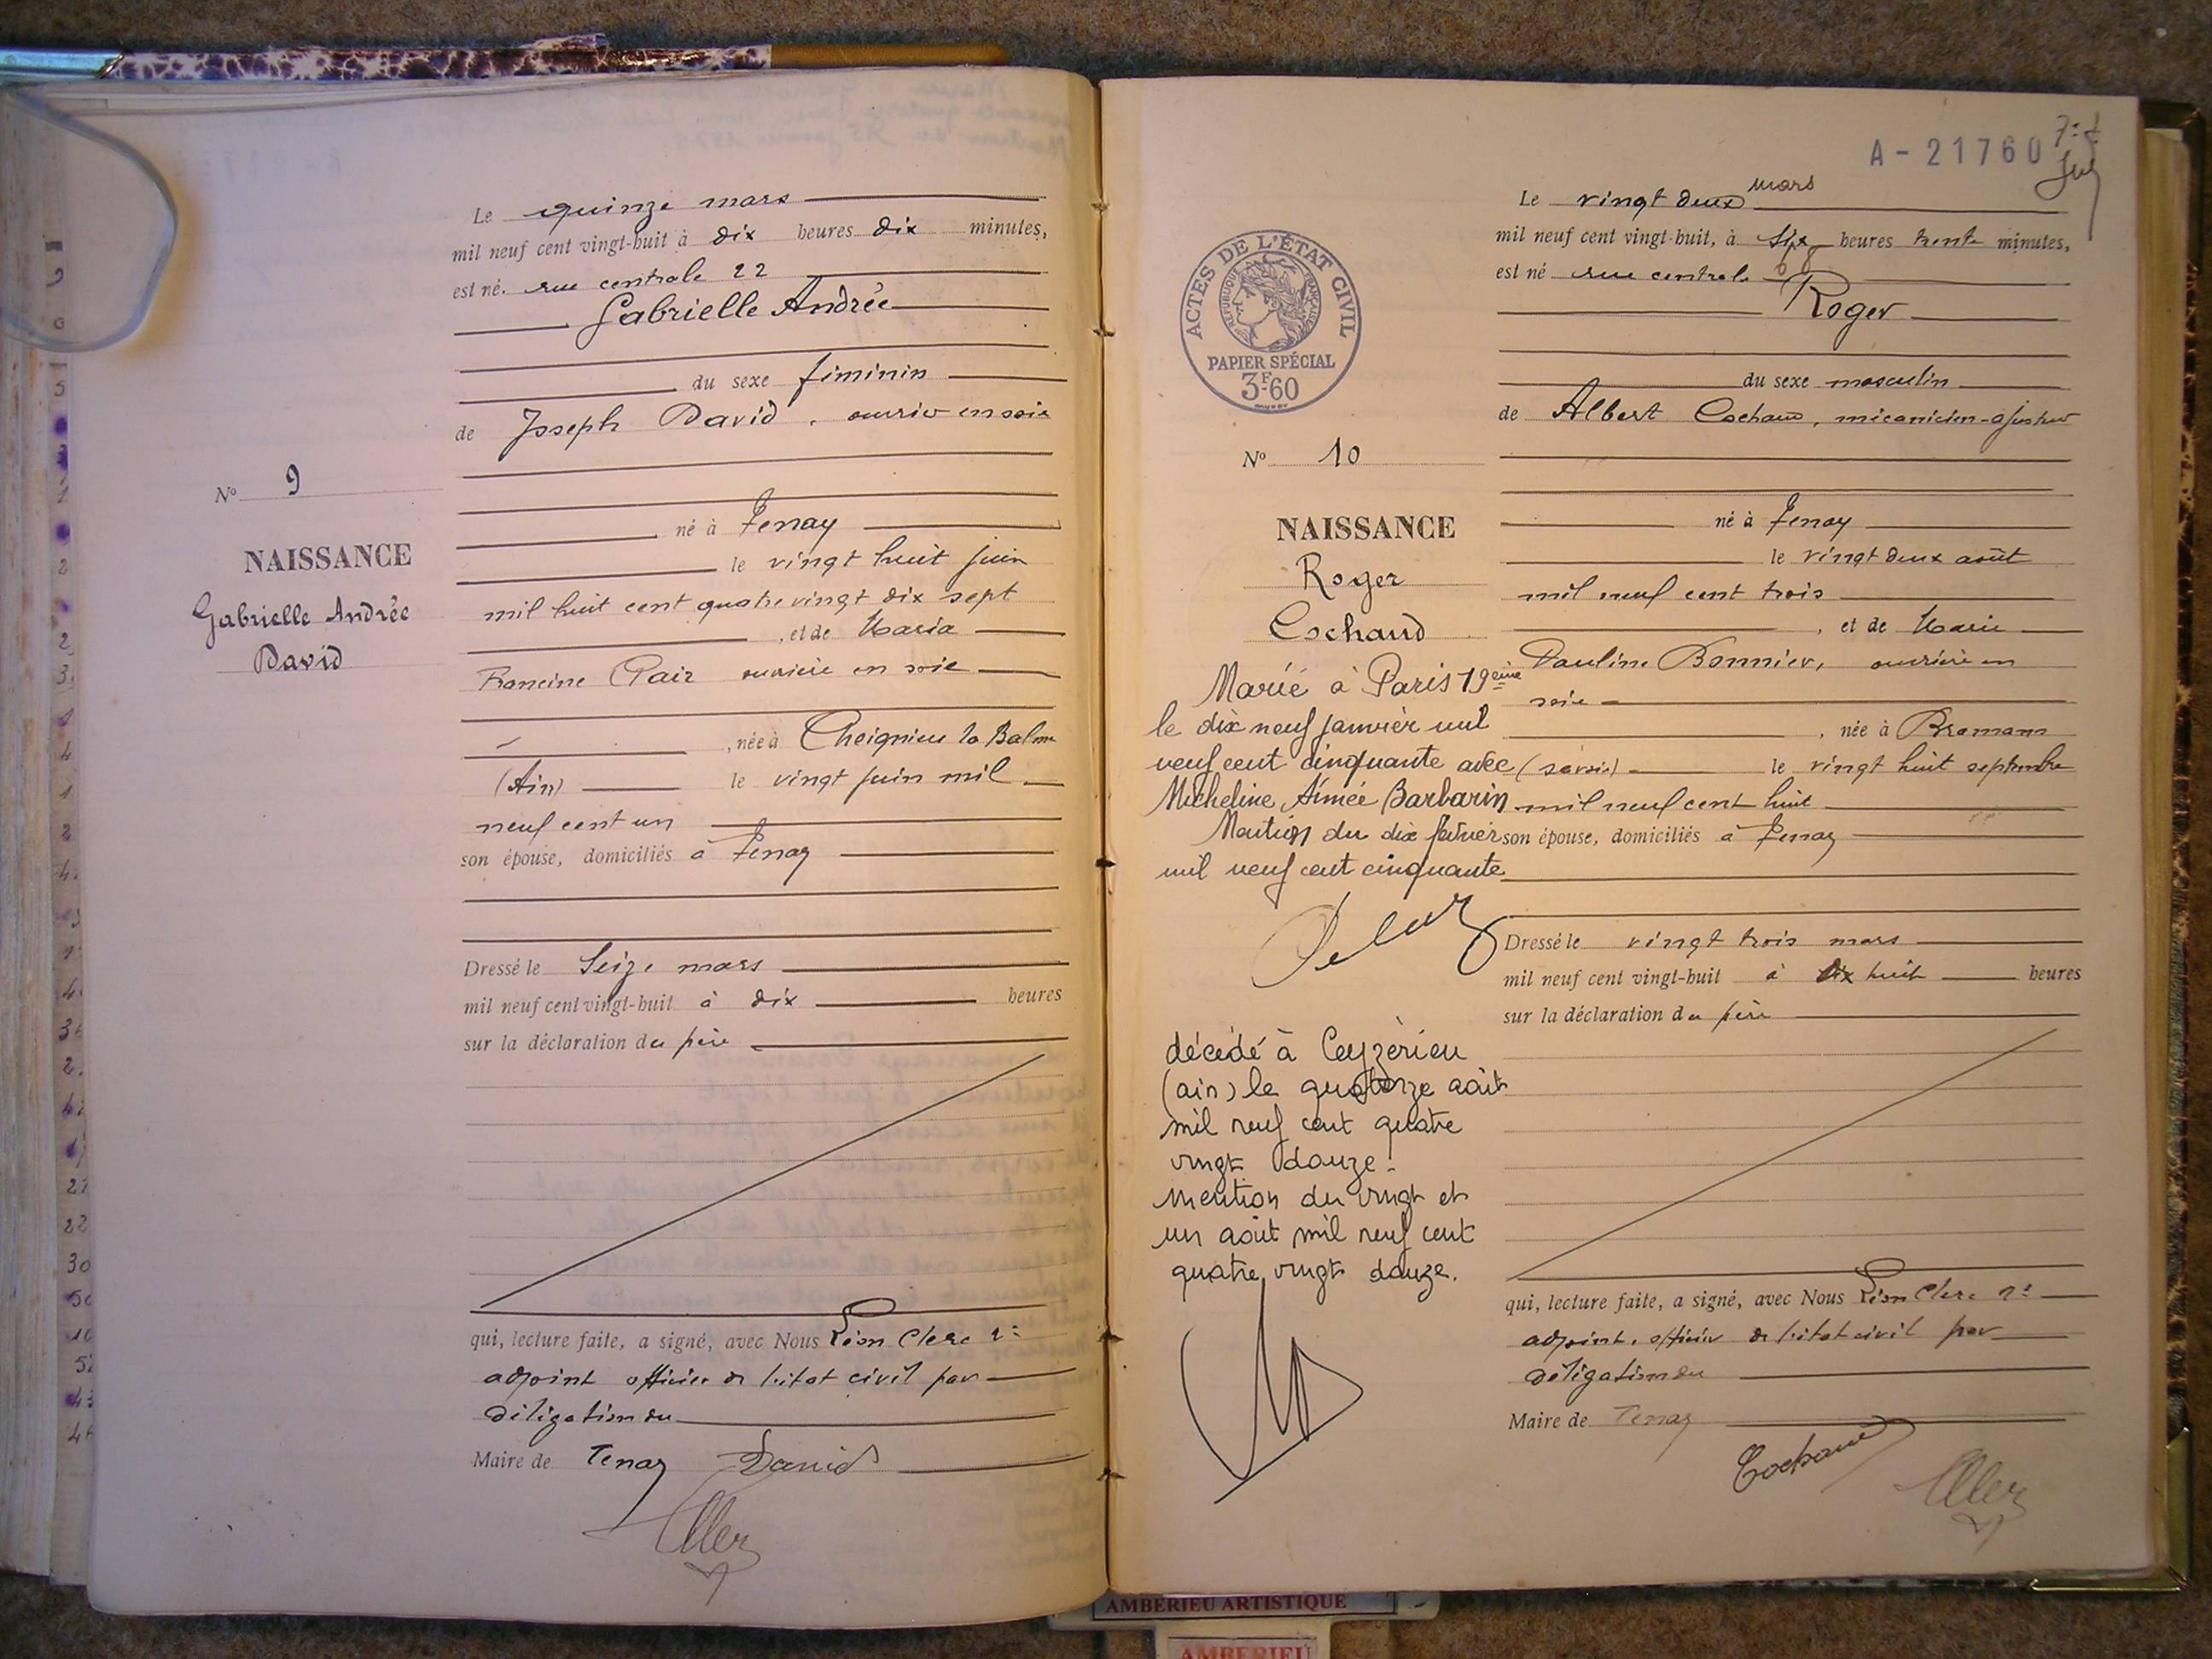 Le quinze mars
mil neuf cent vingt-huit à dix heures dix minutes,
est né. rue centrale 22
Gabrielle Andrée
du sexe féminin
de Joseph David, ouvrier en soie
né à Tenay
le vingt huit juin
mil huit cent quatre vingt dix sept
, et de Maria
Francine Clair ouvrière en soie
, née à Cheignieu la Balme
(Ain) le vingt juin mil
neuf cent un
son épouse, domiciliés à Tenay
Dressé le Seize mars
mil neuf cent vingt-huit à dix heures
sur la déclaration du père
qui, lecture faite, a signé, avec Nous Léon Clerc 2e
adjoint officier de l'état civil par
délégation du
Maire de Tenay David
No 9
NAISSANCE
Gabrielle Andrée
David
A-21760
Le vingt deux mars
mil neuf cent vingt-huit, à six heures trente minutes,
est né rue centrale
Roger
du sexe masculin
de Albert Cochaud, mécanicien-ajusteur
né à Tenay
le vingt deux août
mil neuf cent trois
, et de Marie
Pauline Bonnier, ouvrière en
soie
, née à Bramans
(savoie) le vingt huit septembre
mil neuf cent huit
son épouse, domiciliés à Tenay
Dressé le vingt trois mars
mil neuf cent vingt-huit à dix huit heures
sur la déclaration du père
qui, lecture faite, a signé, avec Nous Léon Clerc 2e
adjoint, officier de l'état civil par
délégation du
Maire de Tenay
Cochaud
ACTES DE L'ÉTAT CIVIL
RÉPUBLIQUE FRANÇAISE
PAPIER SPÉCIAL
3F60
No 10
NAISSANCE
Roger
Cochaud
Marié à Paris 19ème
le dix neuf janvier mil
neuf cent cinquante avec
Micheline Aimée Barbarin
Mention du dix février
mil neuf cent cinquante
décédé à Ceyzérieu
(ain) le quatorze août
mil neuf cent quatre
vingt douze.
Mention du vingt et
un août mil neuf cent
quatre vingt douze.
AMBÉRIEU ARTISTIQUE
AMBÉRIEU